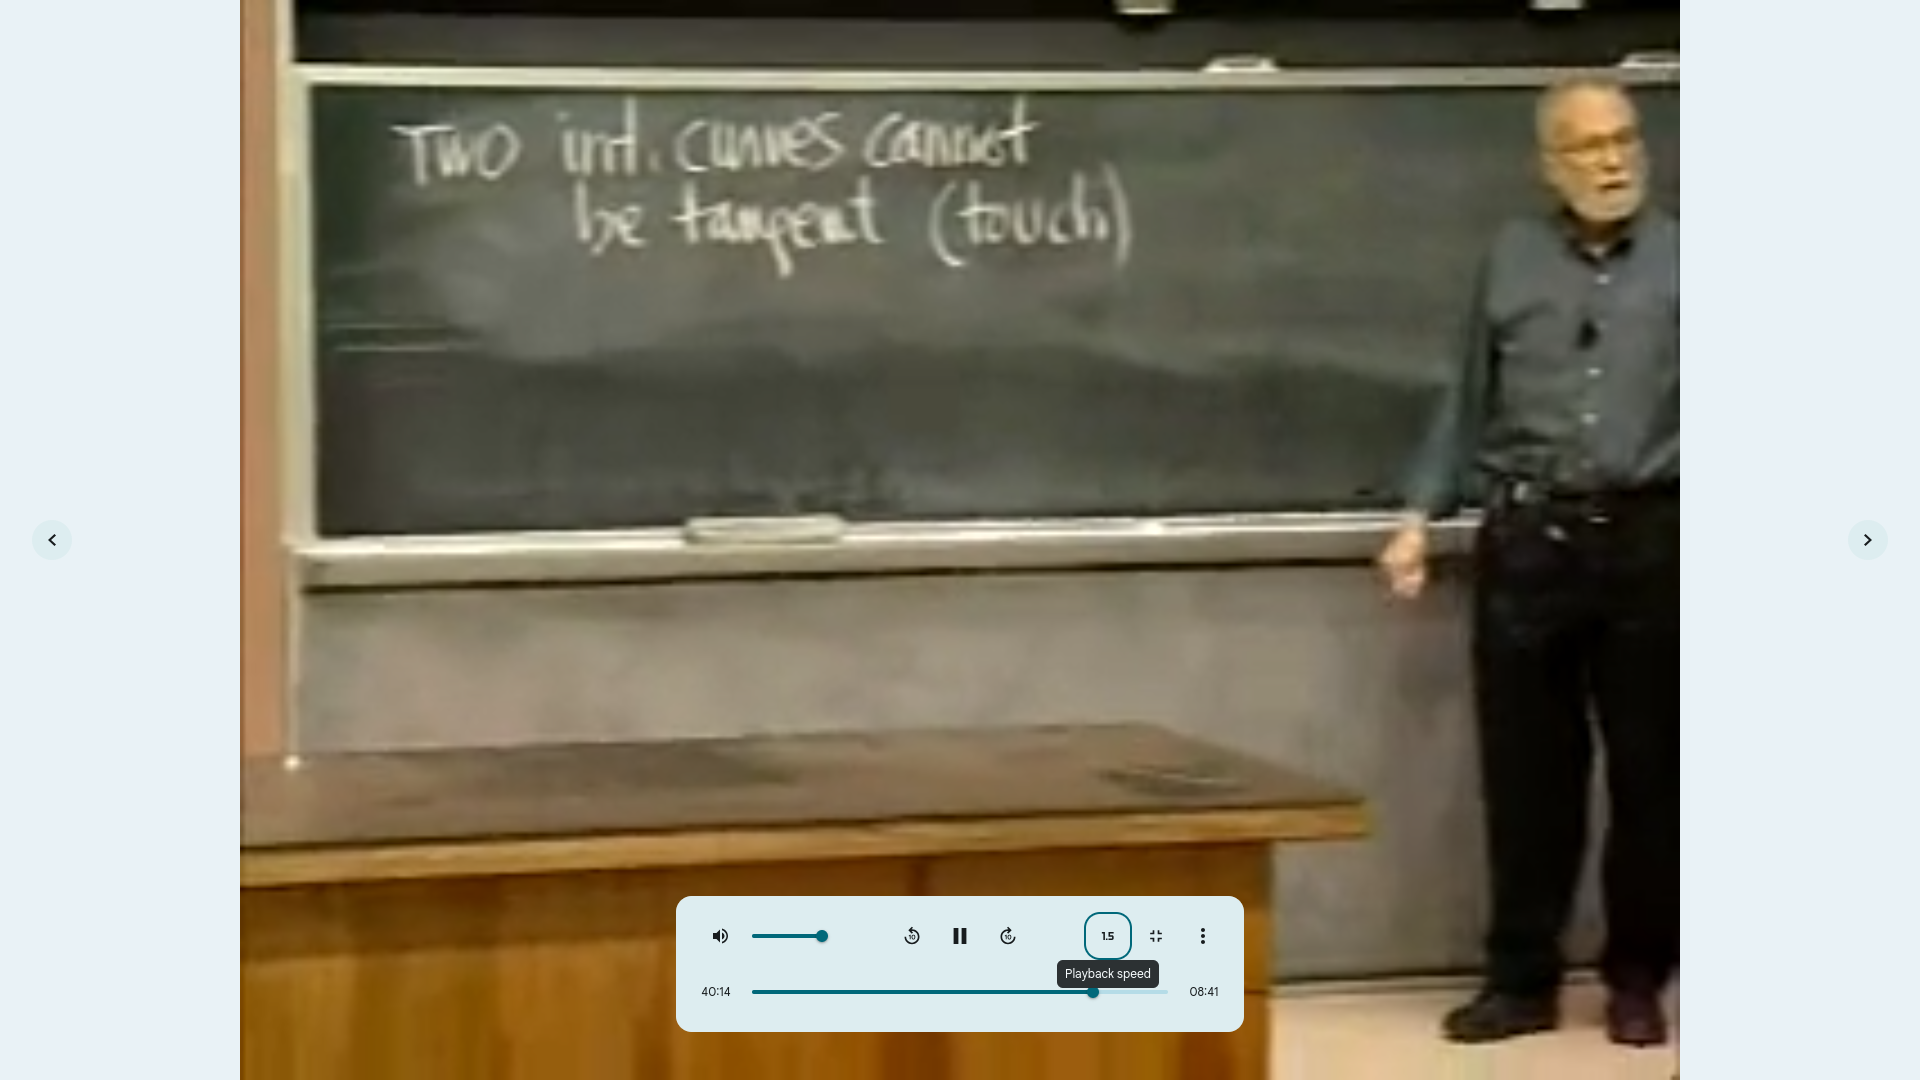 Two int. curves cannot
be tangent (touch)
10
10
1.5
Playback speed
40:14
08:41